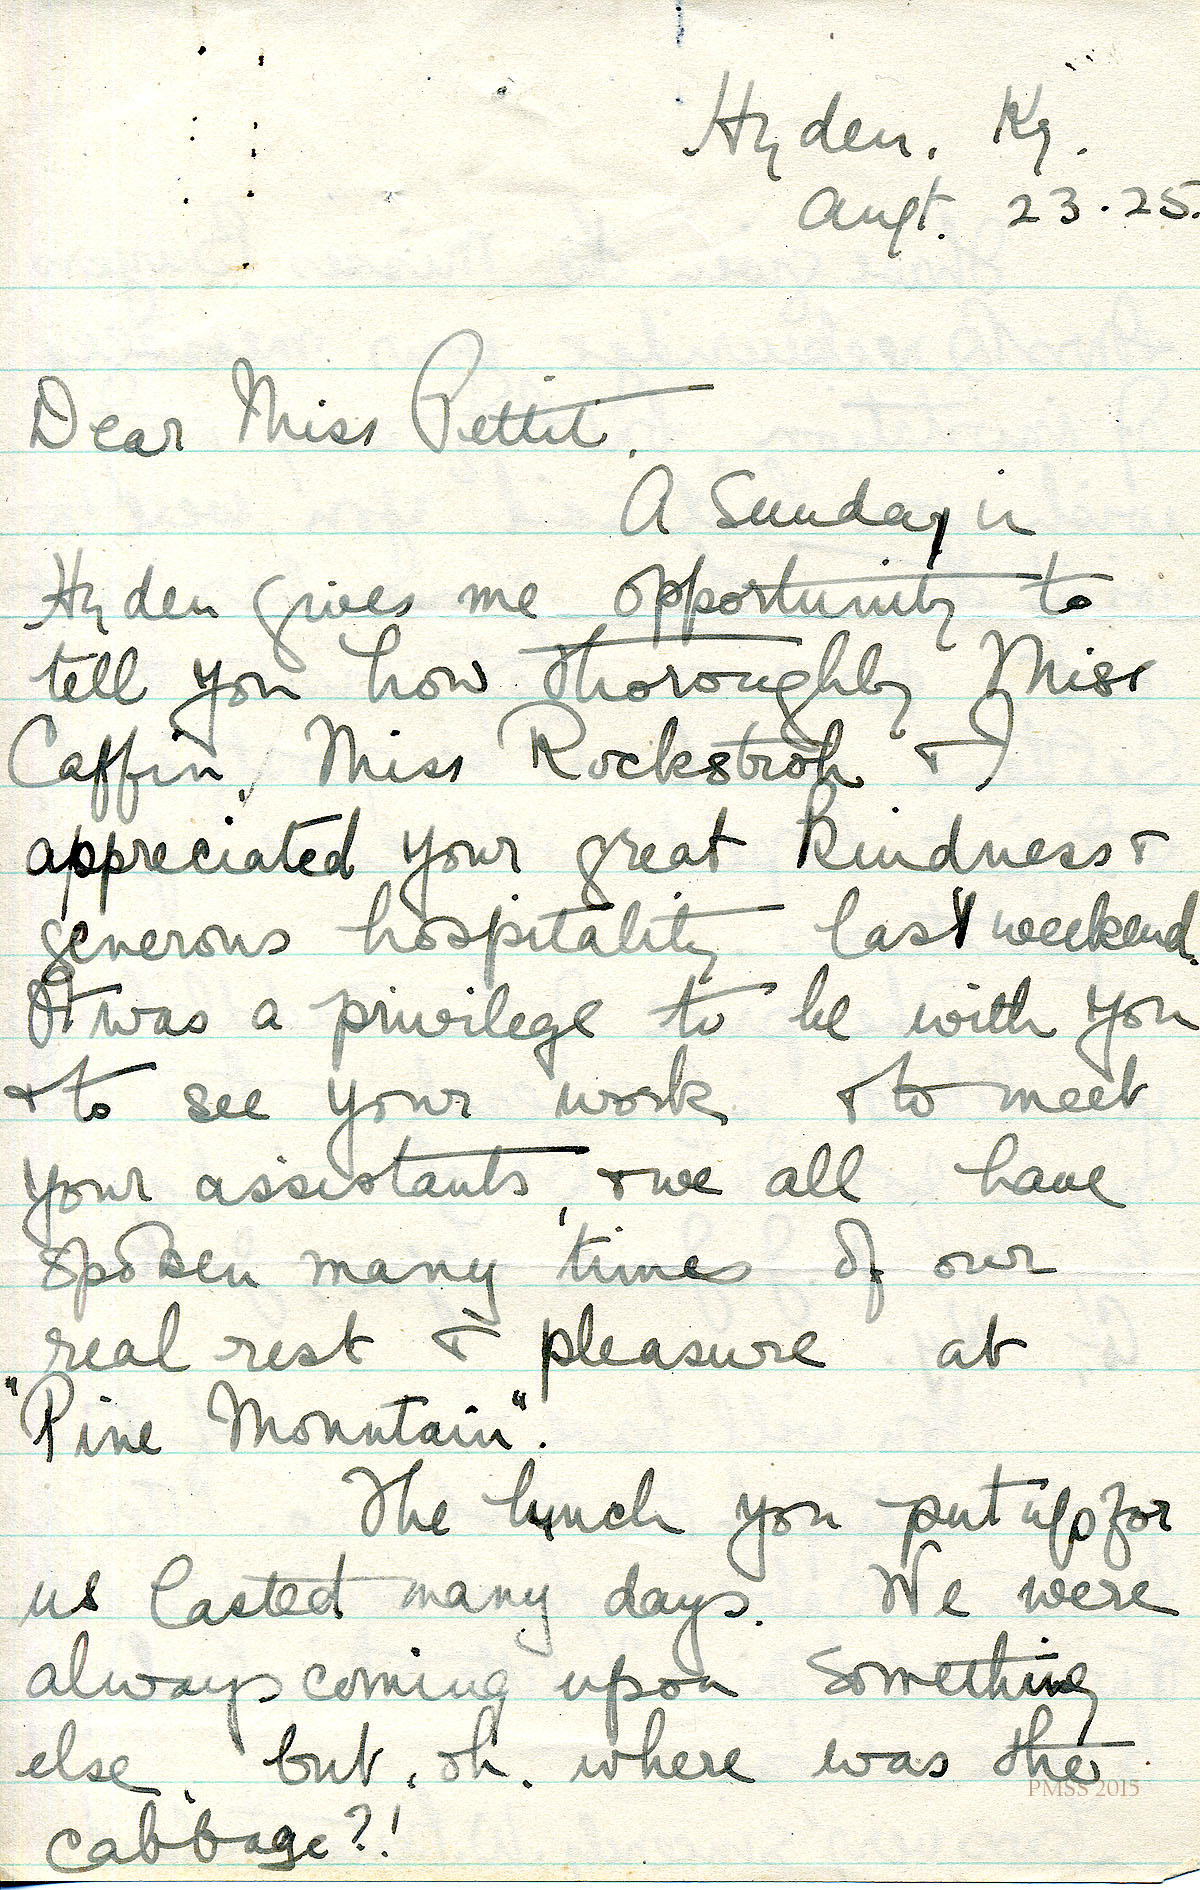 Hyden. Ky.
Augt. 23.25.
Dear Miss Pettit.
A Sunday in
Hyden gives me opportunity to
tell you how thoroughly Miss
Caffin, Miss Rockstroh & I
appreciated your great kindness &
generous hospitality last weekend.
It was a privilege to be with you
& to see your work & to meet
your assistants, & we all have
spoken many times of our
real rest & pleasure at
"Pine Mountain".
The lunch you put up for
us lasted many days. We were
always coming upon something
else, but, oh, where was the
PMSS 2015
cabbage?!